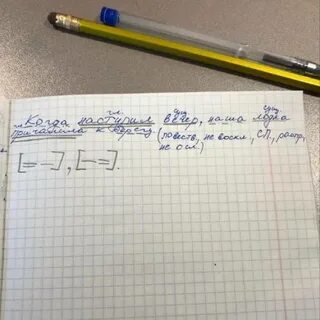 гл. сущ. сущ.
Когда наступил вечер, наша лодка
причалила к берегу (повеств., не воскл., СП., распр.,
не осл.)
[= —], [— =].